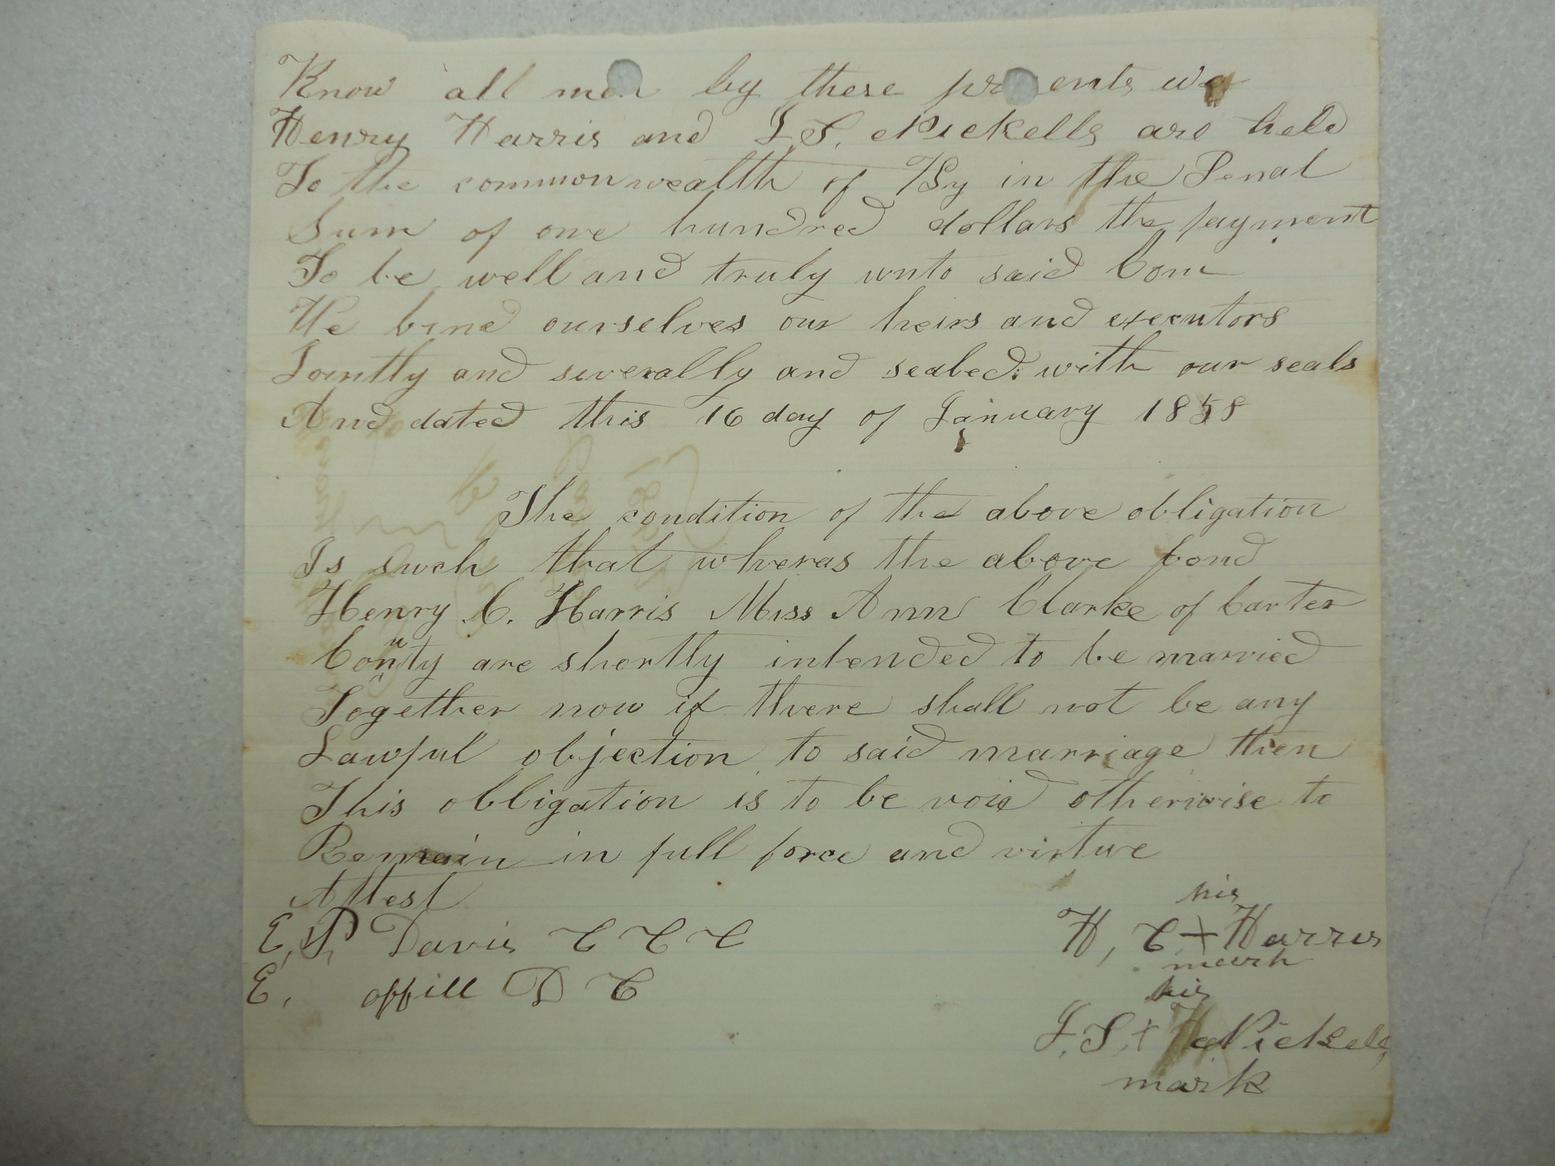 Know all men by these presents we
Henry Harris and J. S. Nickells are held
To the commonwealth of Ky in the Penal
Sum of one hundred dollars the payment
To be well and truly unto said Com
We bind ourselves our heirs and executors
Jointly and siverally and sealed with our seals
And dated this 16 day of January 1858
The condition of the above obligation
Is such that wheras the above bond
Henry C. Harris Miss Ann Clarke of Carter
Conty are shortly intended to be married
Together now if there shall not be any
Lawful objection to said marriage then
This obligation is to be void otherwise to
Remain in full force and virtue
Attest
E. P. Davis C C C
E. offill D C
his
H, C + Harris
mark
his
J. S. + Nickells
mark